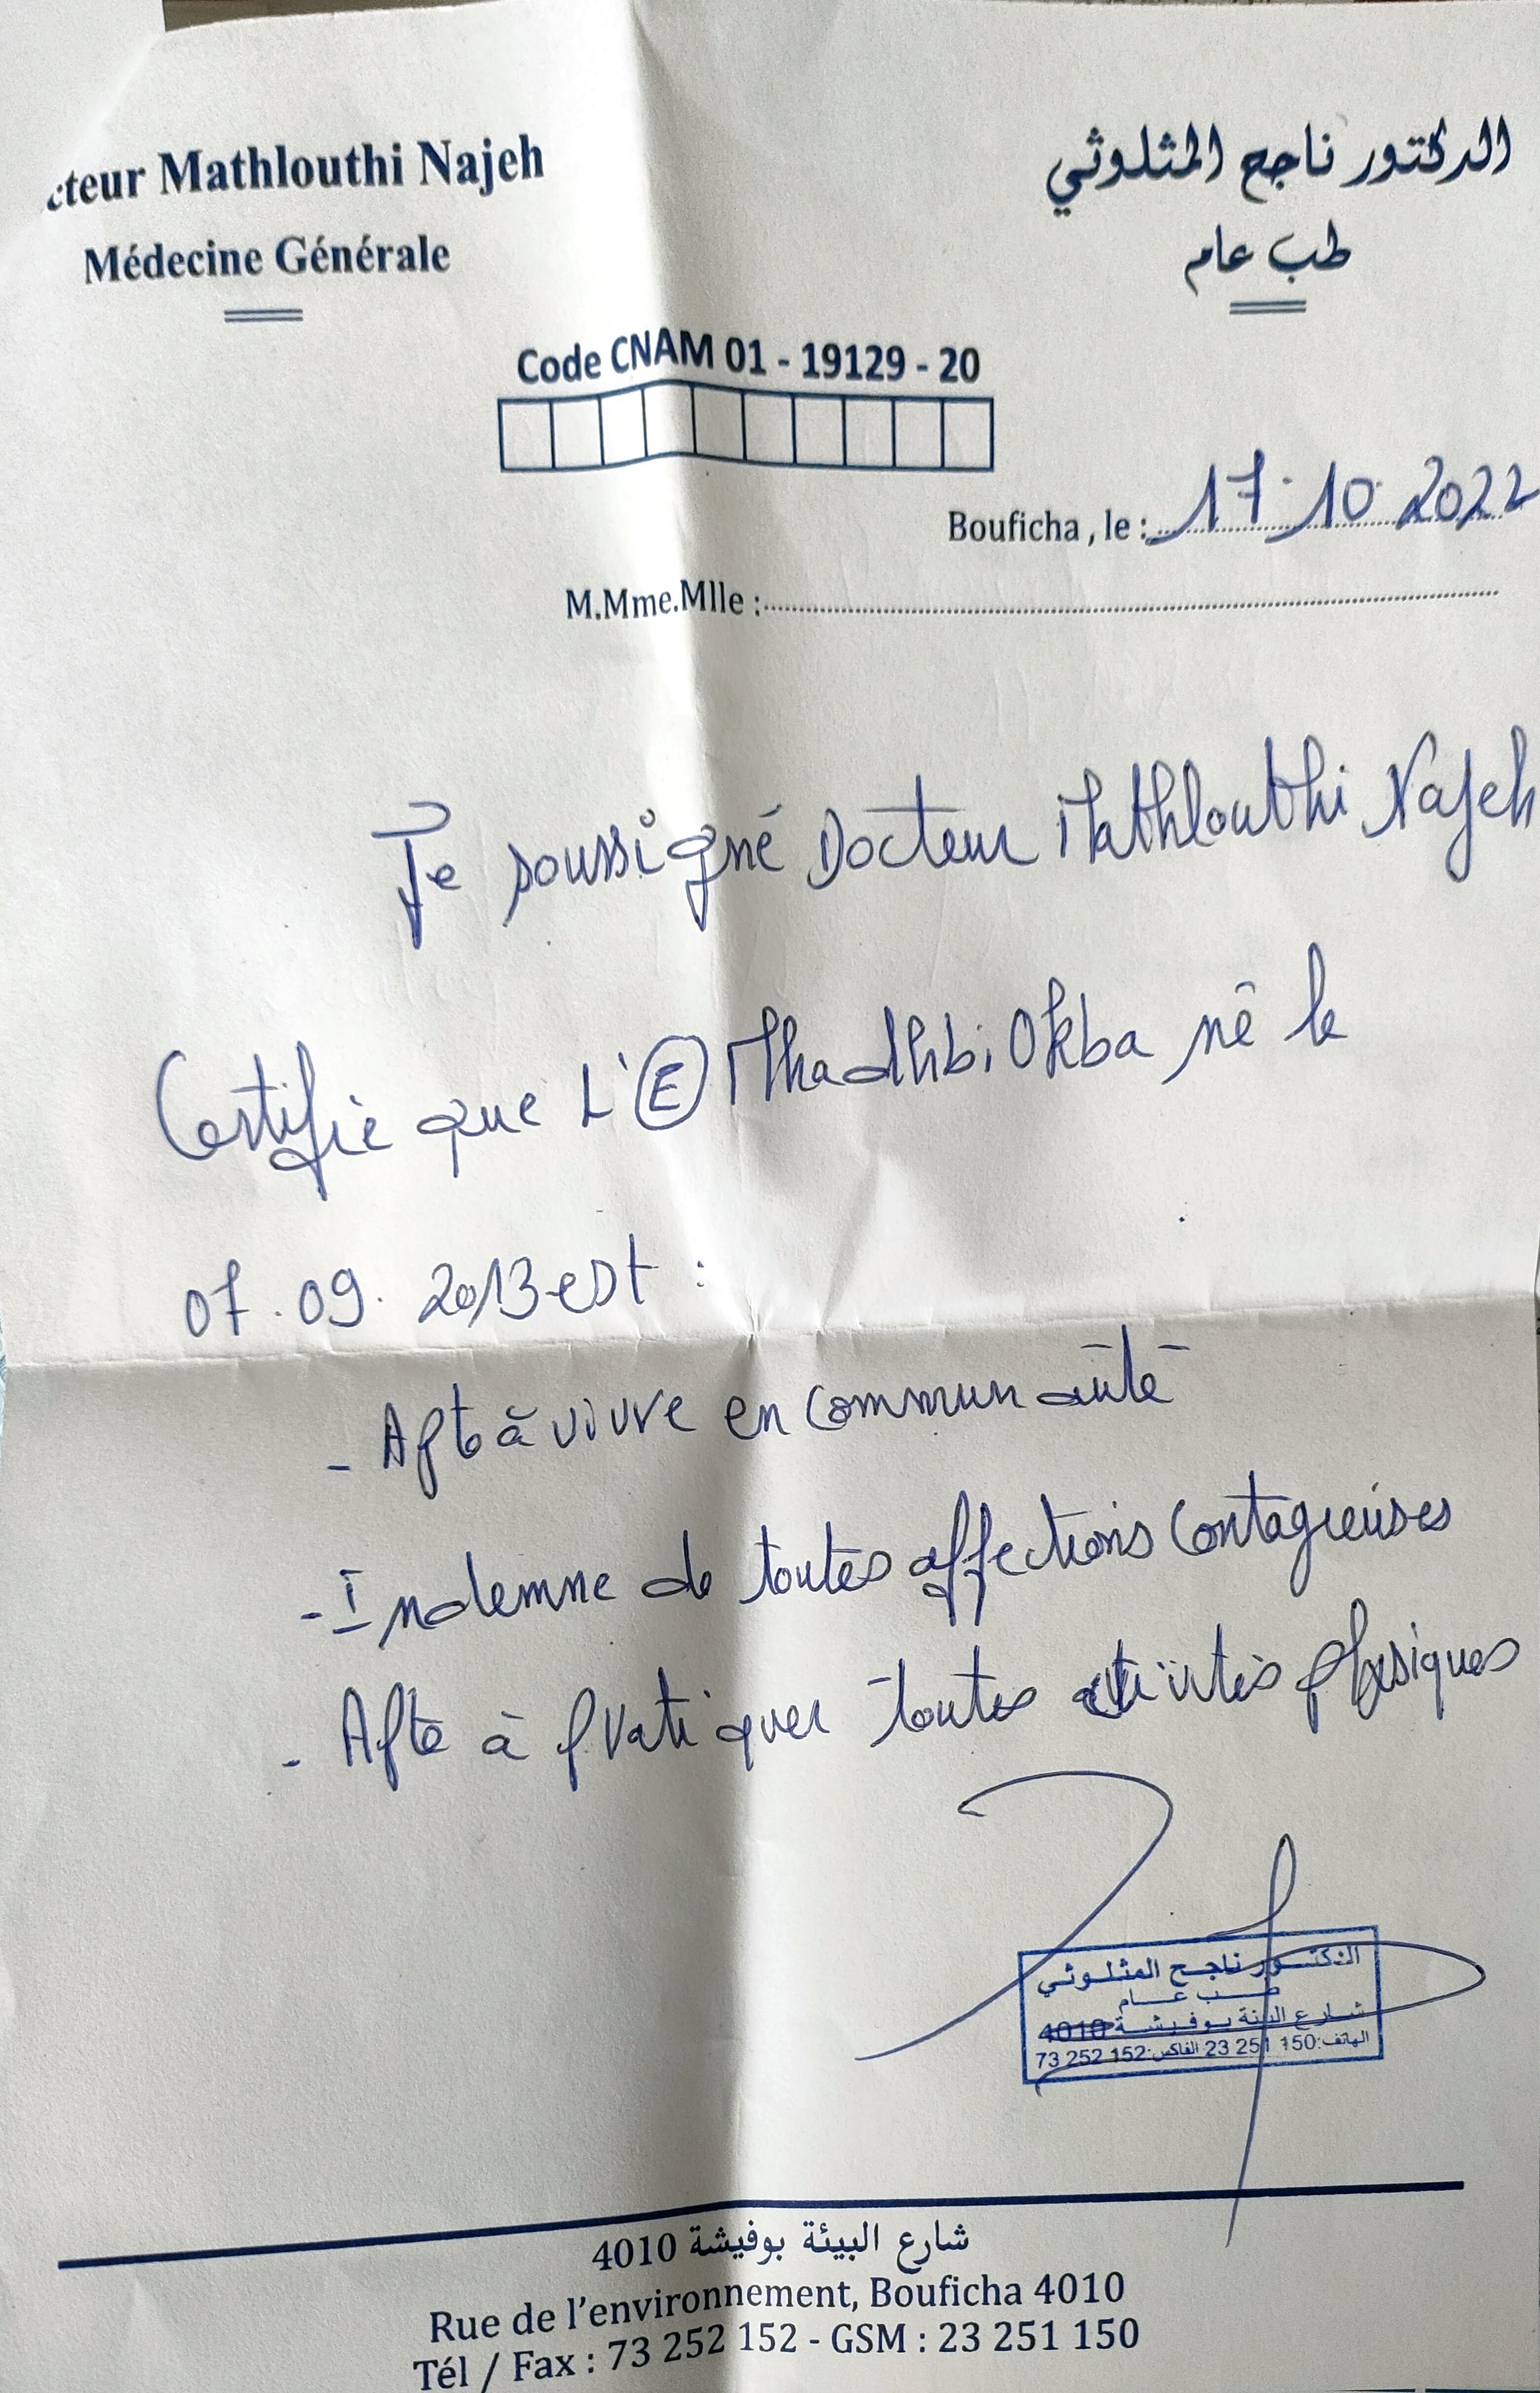 cteur Mathlouthi Najeh
الدكتور ناجح المثلوثي
Médecine Générale
طب عام
Code CNAM 01 - 19129 - 20
Bouficha , le : 17.10.2022
M.Mme.Mlle :
Je soussigné Docteur Mathlouthi Najeh
Certifie que L'E Mhadhbi Okba né le
07.09.2013 est :
- Apte à vivre en communauté
- Indemne de toutes affections contagieuses
- Apte à pratiquer toutes activités physiques
الدكتور ناجح المثلوثي
طب عام
شارع البيئة بوفيشة 4010
الهاتف: 150 251 23 الفاكس: 152 252 73
شارع البيئة بوفيشة 4010
Rue de l'environnement, Bouficha 4010
Tél / Fax : 73 252 152 - GSM : 23 251 150